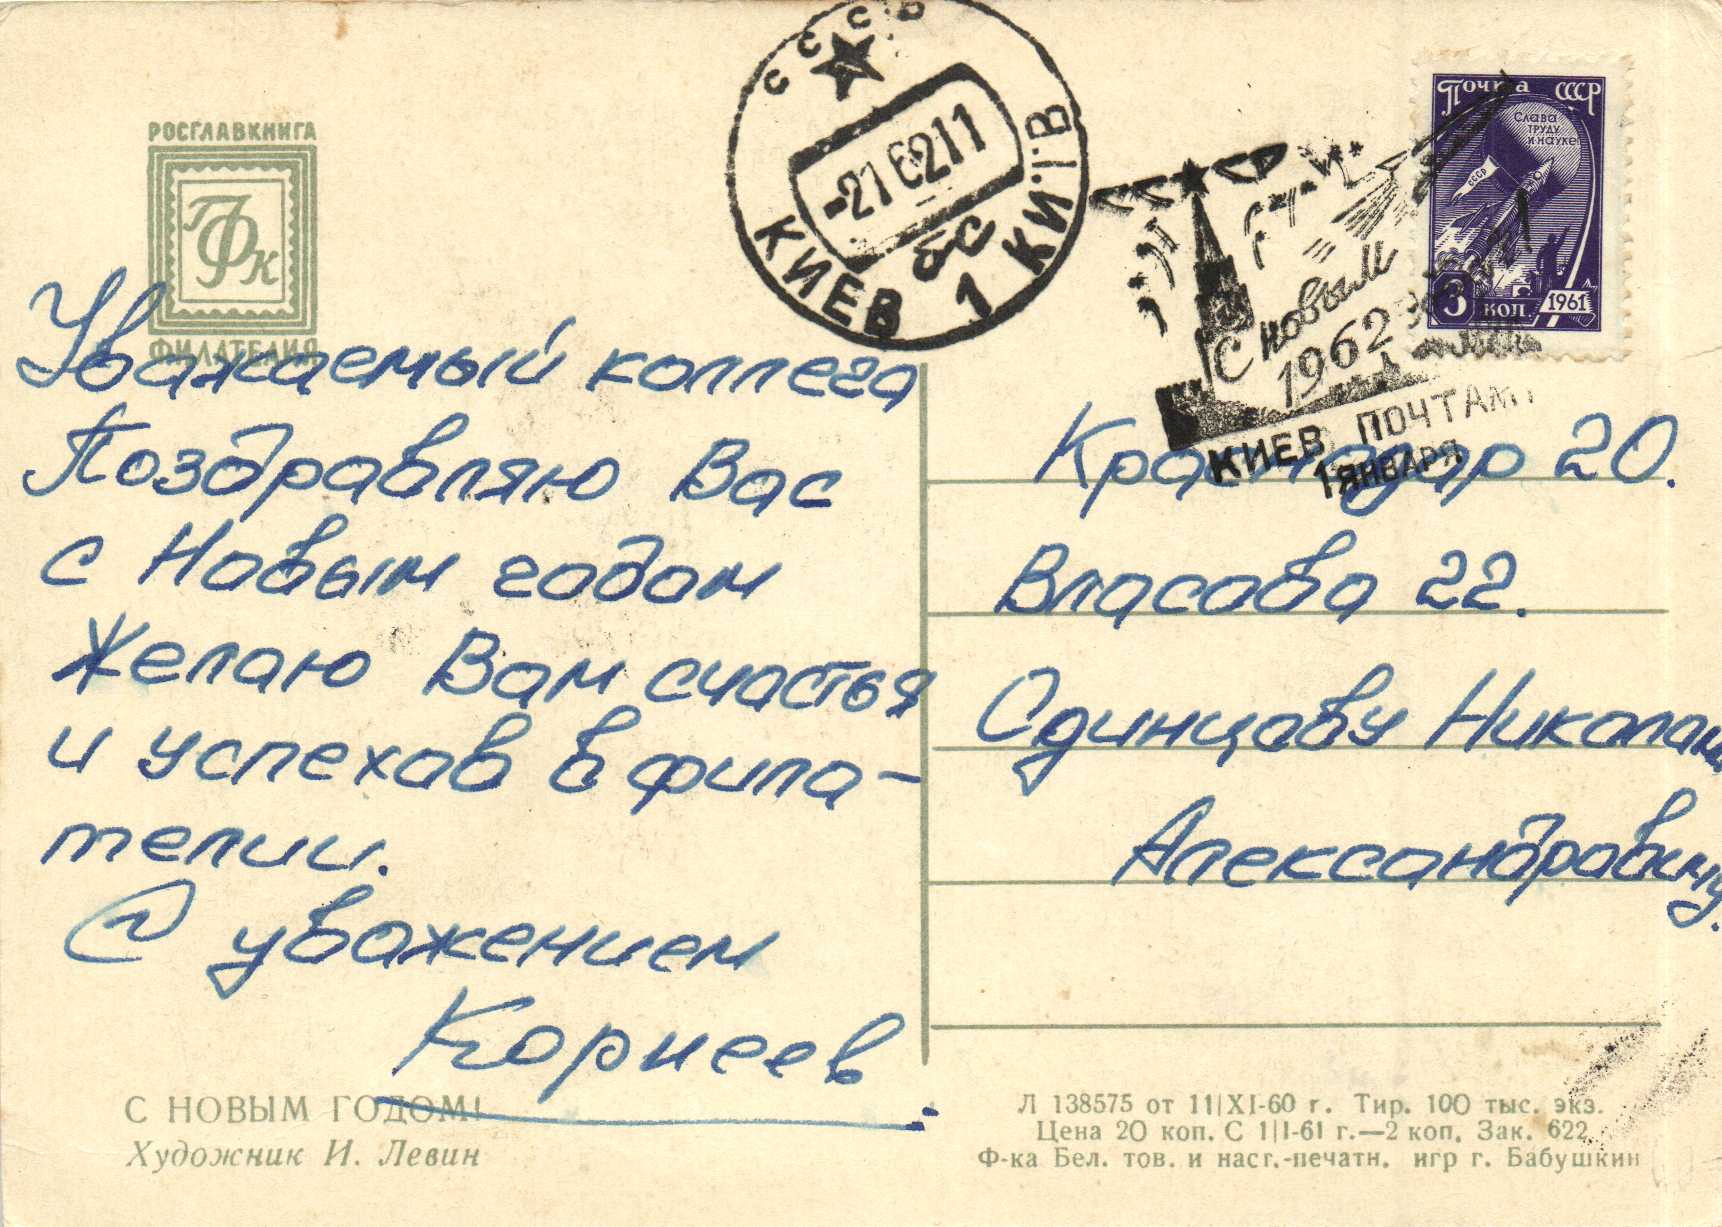 РОСГЛАВКНИГА
ПФК
ФИЛАТЕЛИЯ
СССР
-21 62 11
КИЕВ 1 КИЇВ
Почта СССР
Слава
труду
и науке
СССР
3 коп. 1961
С новым
1962
КИЕВ ПОЧТАМТ
1 ЯНВАРЯ
Уважаемый коллега
Поздравляю Вас
с Новым годом
Желаю Вам счастья
и успехов в фила-
телии.
С уважением
Корнеев
Краснодар 20.
Власова 22.
Одинцову Николаю
Александровичу.
С НОВЫМ ГОДОМ!
Художник И. Левин
Л 138575 от 11|XI-60 г. Тир. 100 тыс. экз.
Цена 20 коп. С 1|I-61 г.—2 коп. Зак. 622
Ф-ка Бел. тов. и наст.-печатн. игр г. Бабушкин